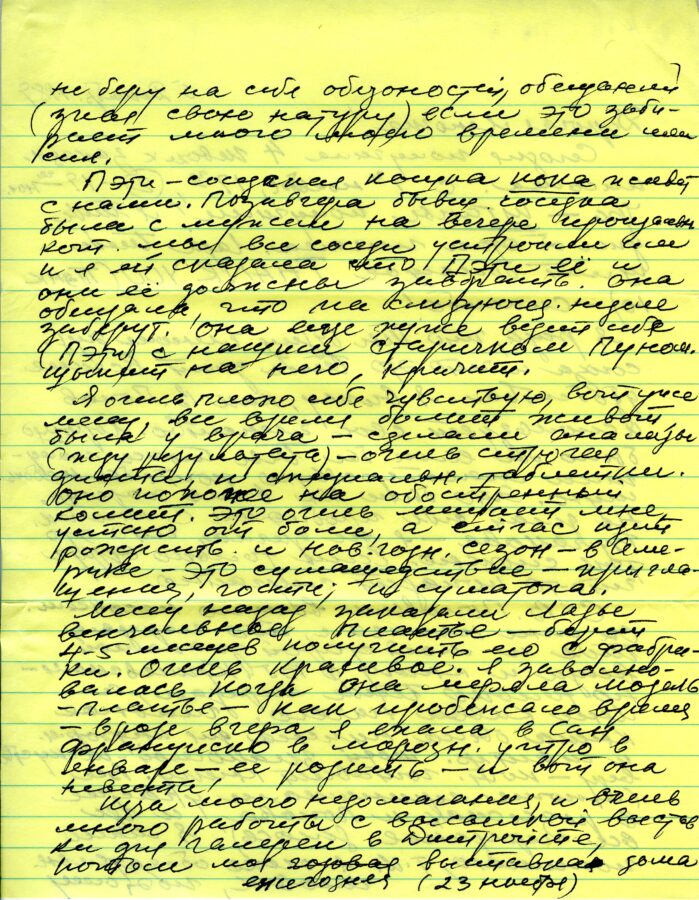 не беру на себя обязоностей, обещаний
(зная свою натуру) если это заби-
рает много моего времени или
сил.
Пэти – соседская кошка пока живет
с нами. Позавчера бывш. соседка
была с мужем на вечере прощальн
кот. мы все соседи устроили им
и я ей сказала что Пэти её и
они её должны забрать. Она
обещала, что на следующ. неделе
заберут. Она еще хуже ведет себя
(Пэти) с нашим старичком Пуком.
шипит на него, кричит.
Я очень плохо себя чувствую, вот уже
месяц, все время болит живот
была у врача – сделали анализы
(жду результата) – очень строгая
диета, и специальн. таблетки.
Оно похоже на обостренный
колит. Это очень мешает мне,
устаю от боли, а сейчас идет
рождеств. и нов.годн. сезон – в Аме-
рике – это сумашедствие – пригла-
шения, гости, и суматоха.
Месяц назад заказали Ладье
венчальное платье – берет
4-5 месяцев получить его с фабри-
ки. Очень красивое. Я заволно-
валась когда она меряла модель
– платье – как пробежало время
– вроде вчера я ехала в Сан
Франциско в морозн. утро в
январе – ее родить – и вот она
невеста!
Из за моего недомогания, и очень
много работы с высылкой выстав
ки для галереи в Дитройте,
потом моя годовая выставка дома
ежегодняя (23 ноября)